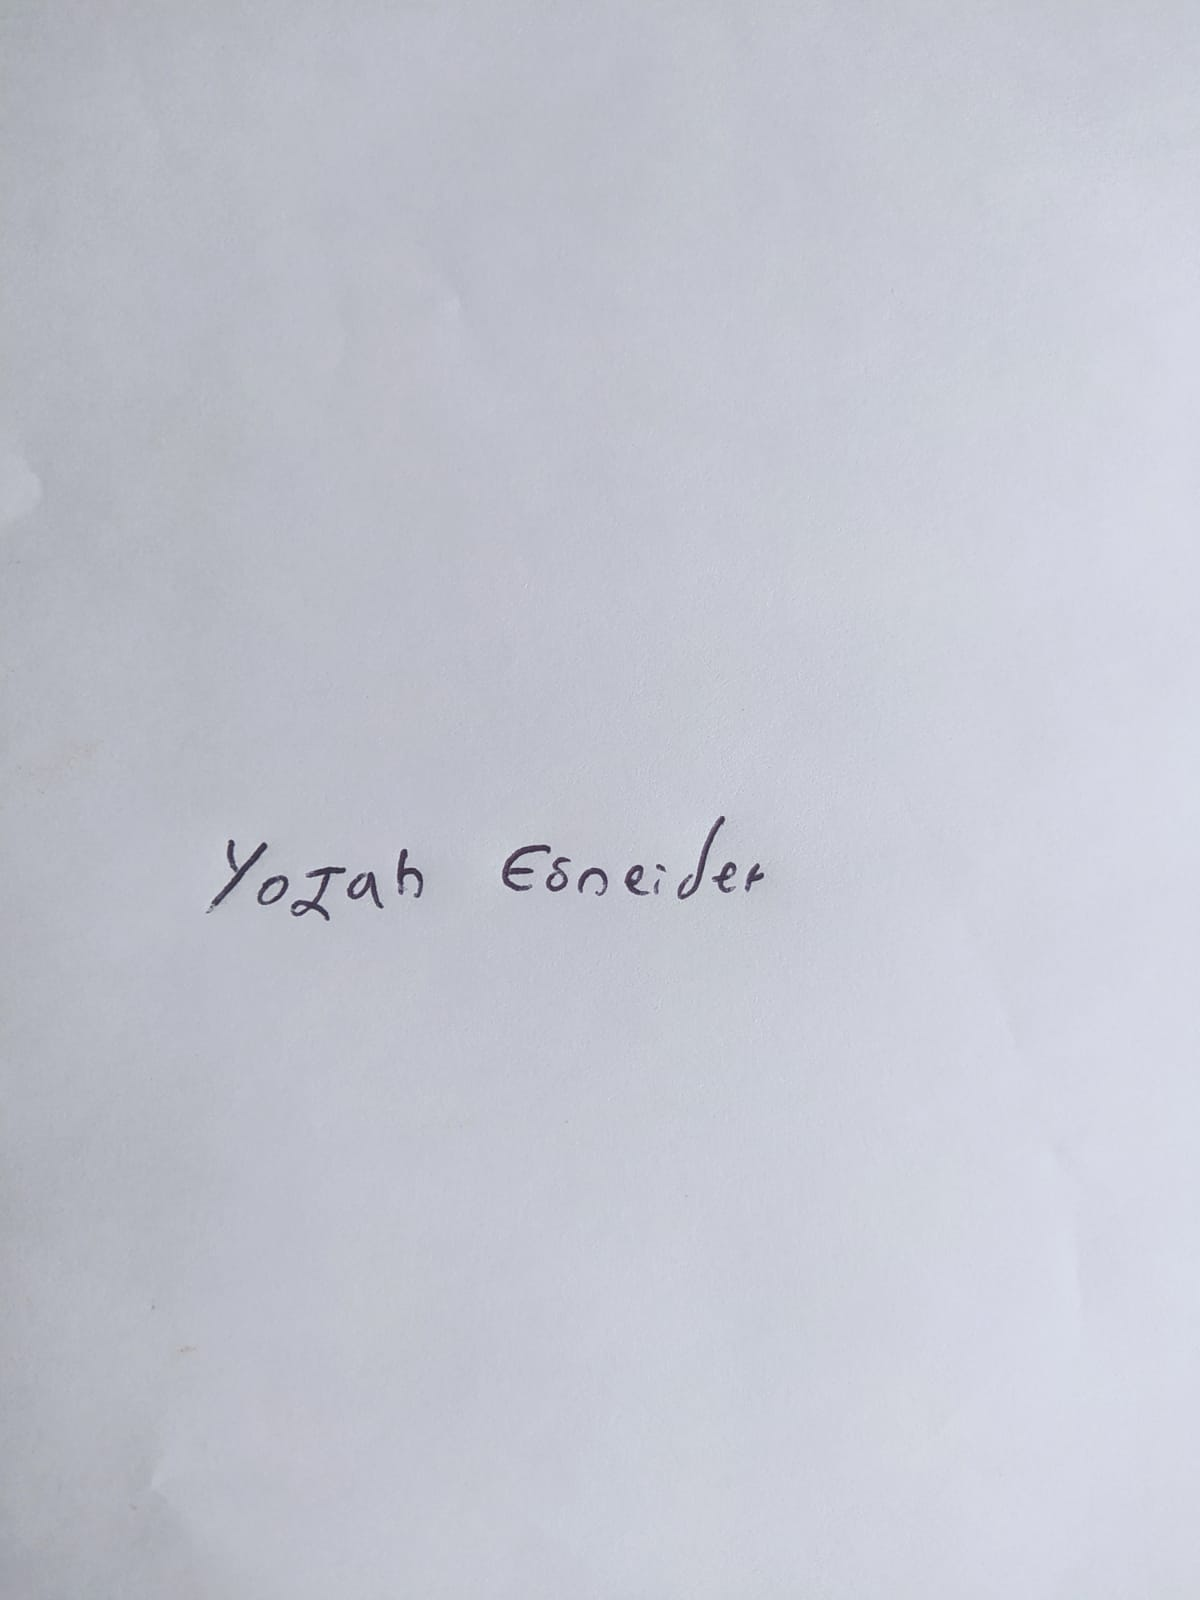 Yojah Esneider